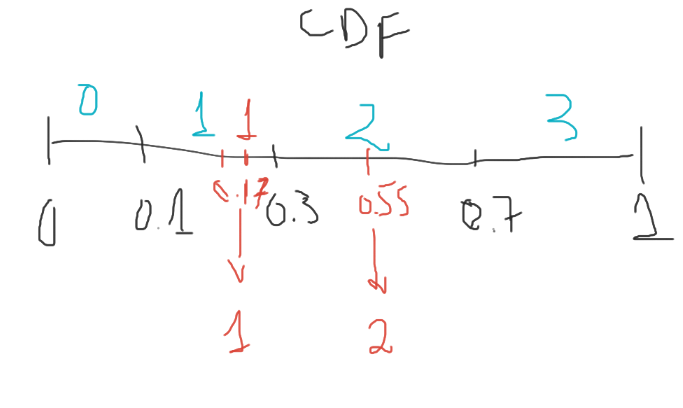 CDF
0 1 1 2 3
0 0.1 0.17 0.3 0.55 0.7 1
1 2